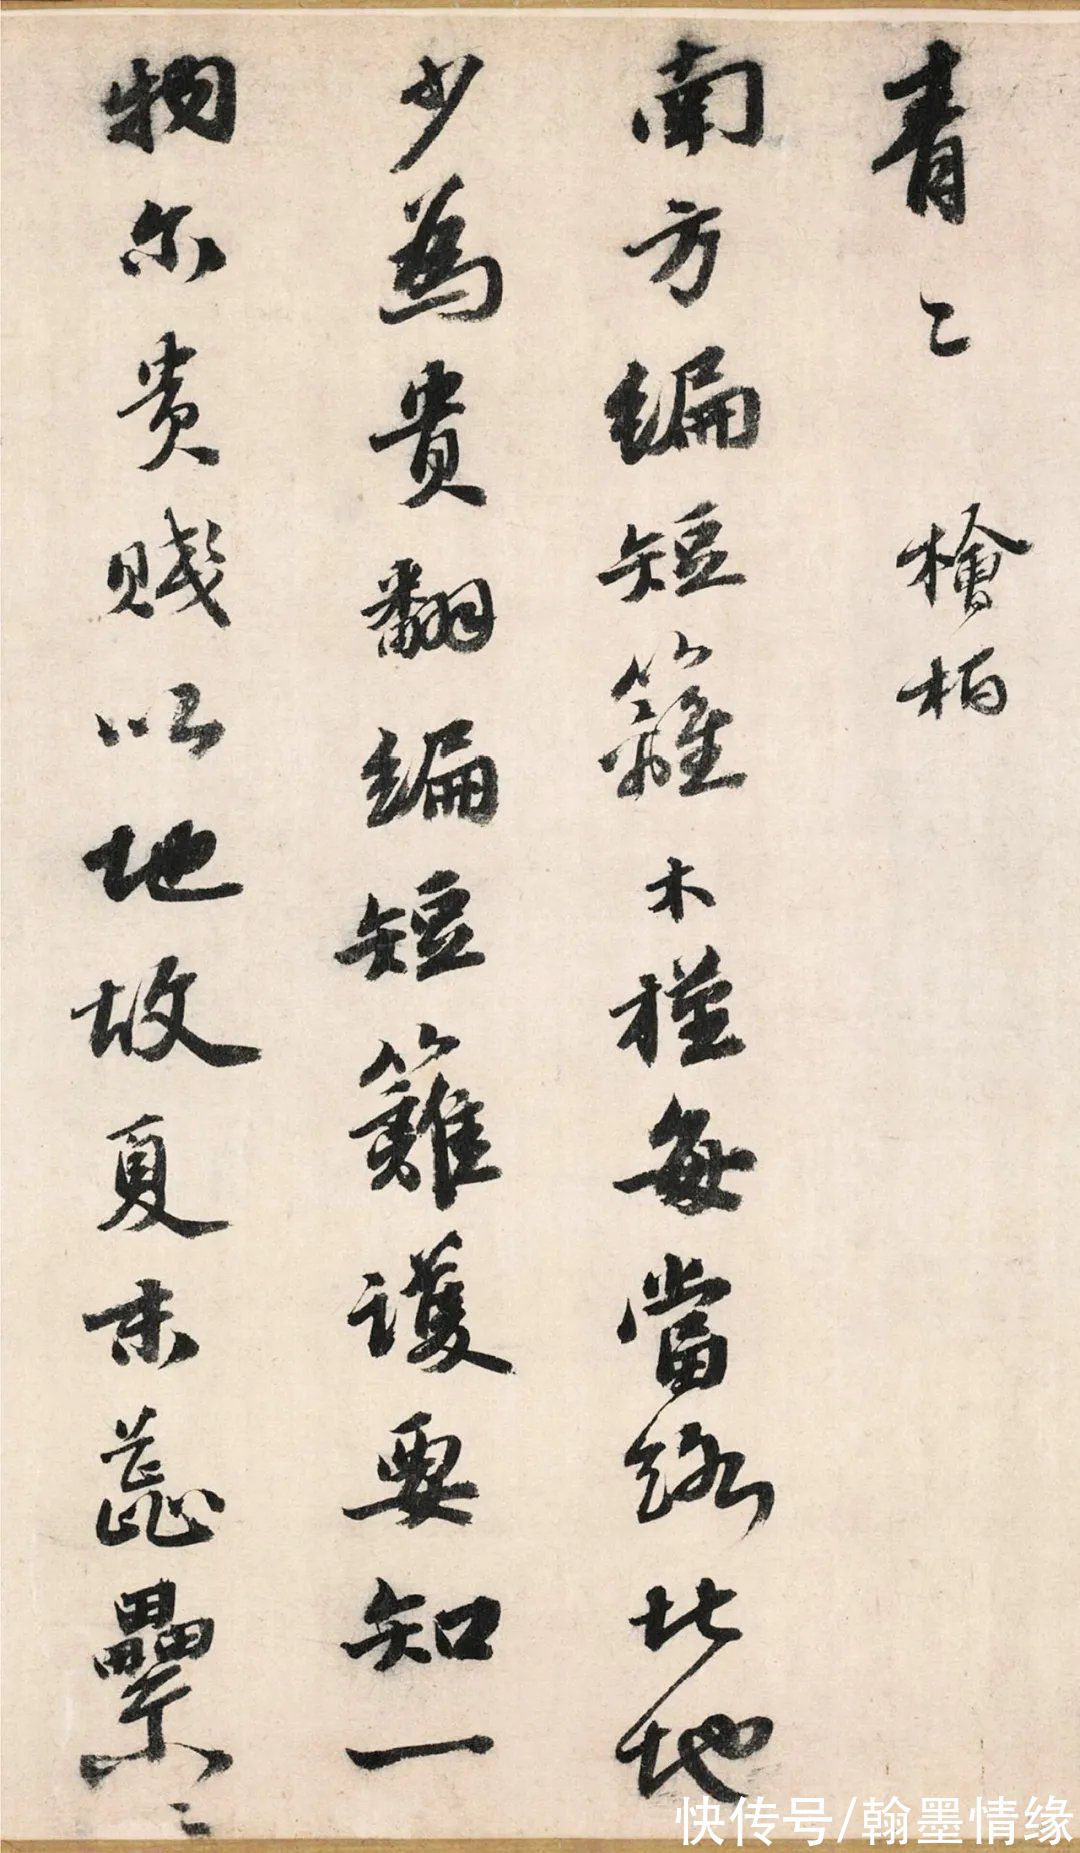 青〻 檜柏
南方編短籬木槿每當路北地
少為貴翻編短籬護要知一
物尔貴賤以地故夏末蕊纍〻
快传号/翰墨情缘